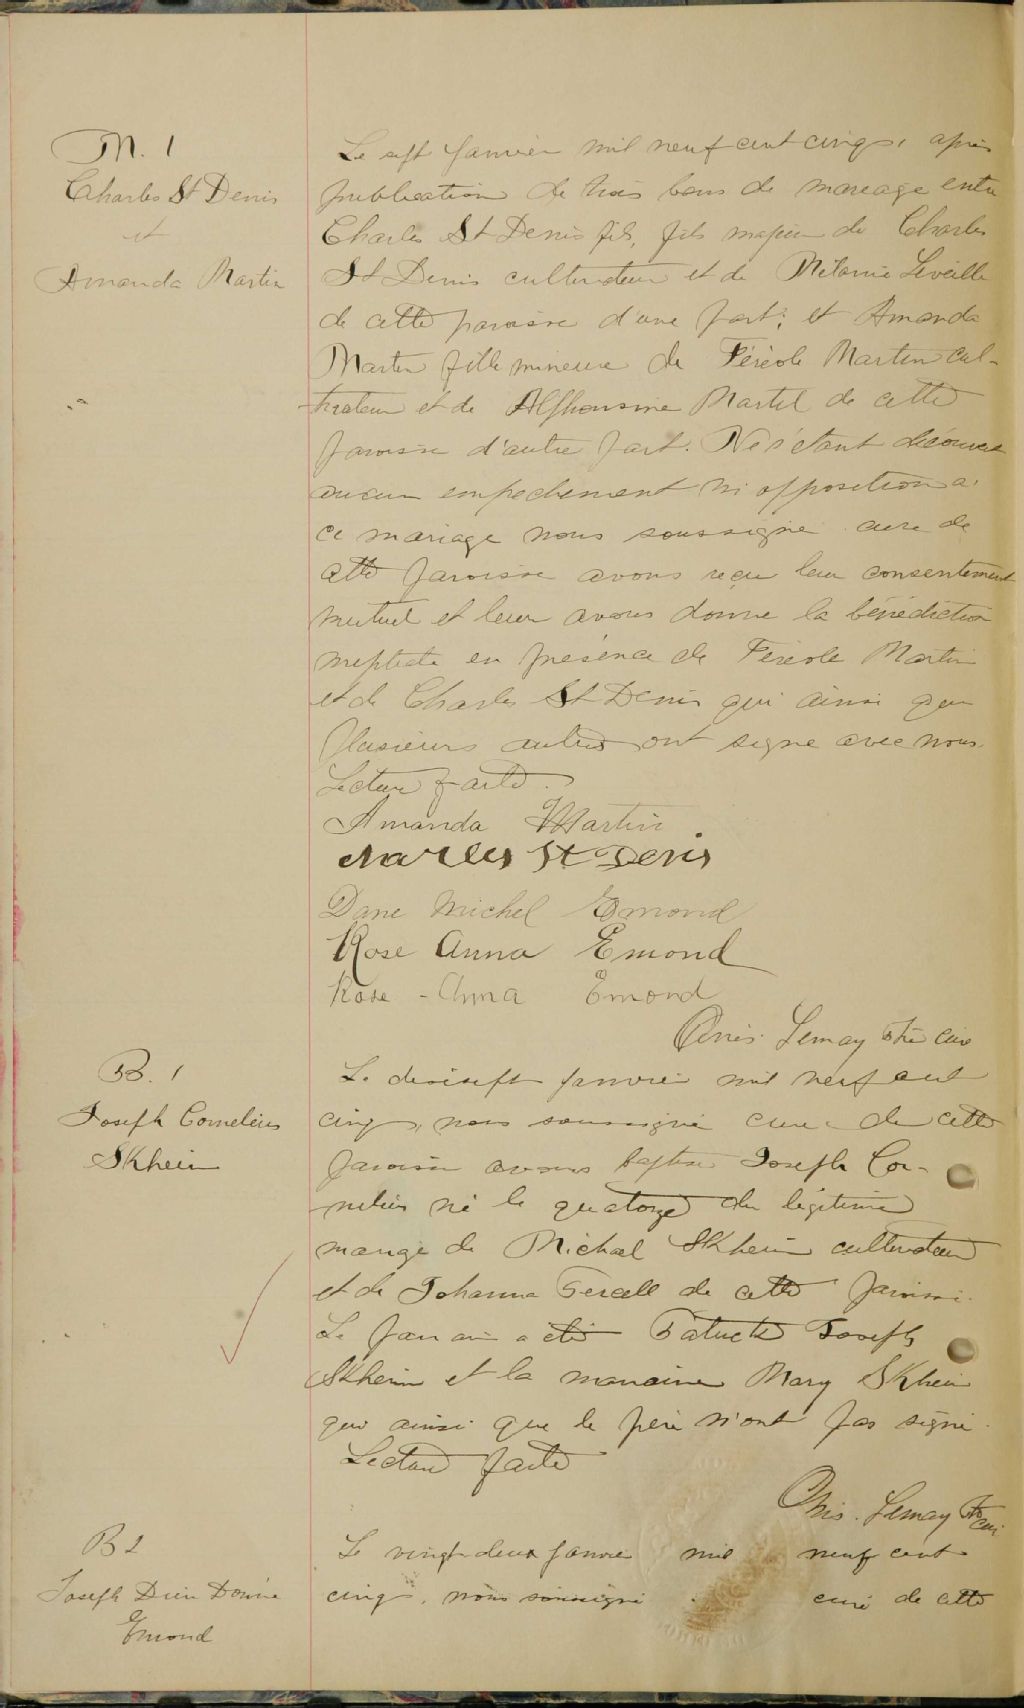 M. 1
Charles St Denis
et
Amanda Martin
Le sept Janvier mil neuf cent cinq, après
publication de trois bans de mariage entre
Charles St Denis fils, fils majeur de Charles
St Denis cultivateur et de Mélanie Léveillé
de cette paroisse d'une part; et Amanda
Martin fille mineure de Féréole Martin cul-
tivateur et de Alphonsine Martel de cette
paroisse d'autre part. Ne s'étant découvert
aucun empechement ni opposition a
ce mariage nous soussigné curé de
cette paroisse avons reçu leur consentement
mutuel et leur avons donné la bénédiction
nuptiale en présence de Féréole Martin
et de Charles St Denis qui ainsi que
plusieurs autres ont signé avec nous.
Lecture faite.
Amanda Martin
Charles St Denis
Dane Michel Emond
Rose Anna Emond
Rose - Anna Emond
Onés. Lemay Ptre curé
B. 1
Joseph Cornelius
Skhein
Le dixsept Janvier mil neuf cent
cinq, nous soussigné curé de cette
paroisse avons baptisé Joseph Cor-
nelius né le quatorze du légitime
mariage de Michael Skhein cultivateur
et de Johanna de cette paroisse.
Le parrain a été Patrick Joseph
Skhein et la marraine Mary Skhein
qui ainsi que le père n'ont pas signé.
Lecture faite
Onés. Lemay Ptre curé
B 2
Joseph Dieu Donné
Emond
Le vingt-deux Janvier mil neuf cent
cinq, nous soussigné curé de cette